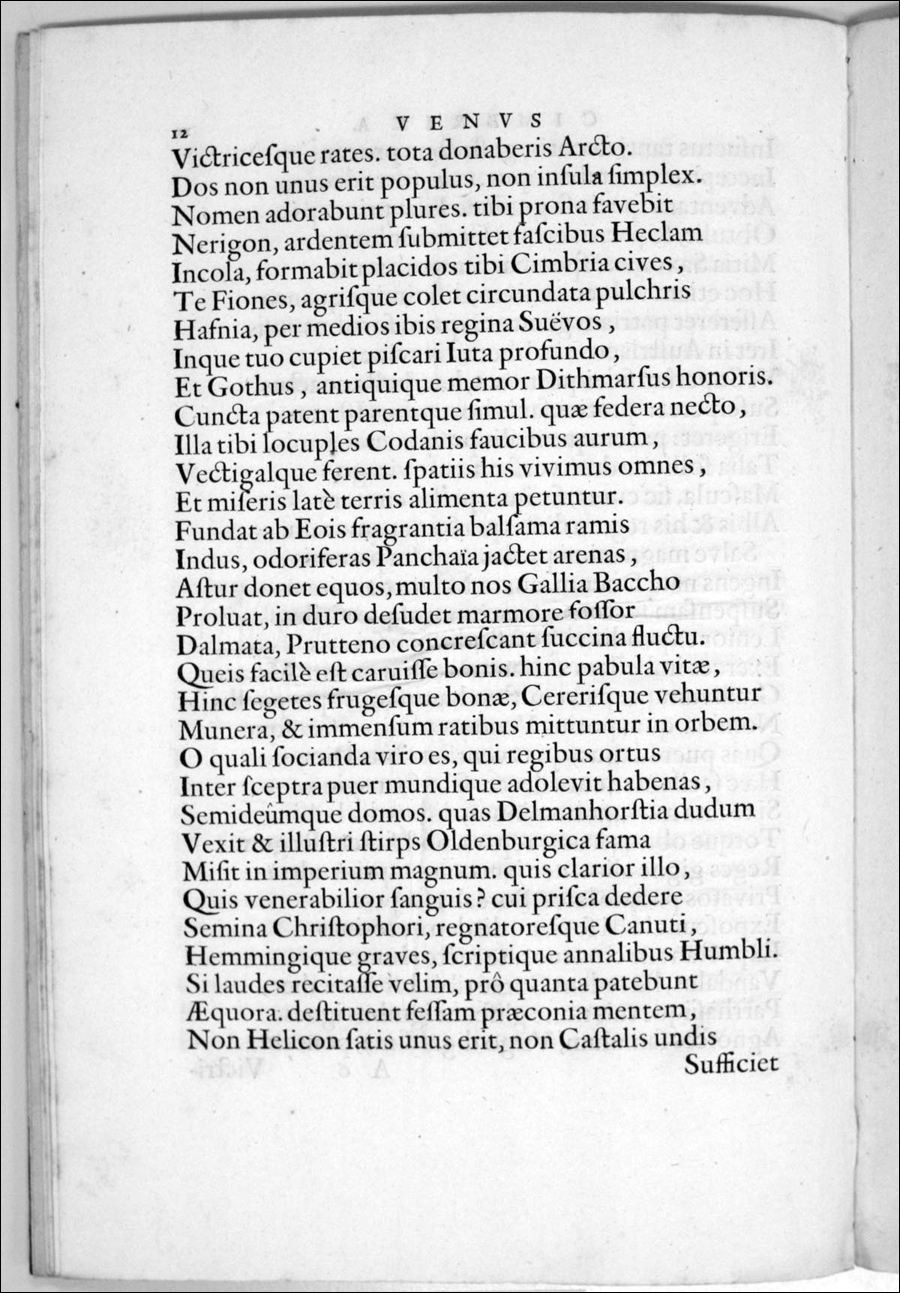 12
VENVS
Victriceſque rates. tota donaberis Arcto.
Dos non unus erit populus, non inſula ſimplex.
Nomen adorabunt plures. tibi prona favebit
Nerigon, ardentem ſubmittet faſcibus Heclam
Incola, formabit placidos tibi Cimbria cives,
Te Fiones, agriſque colet circundata pulchris
Hafnia, per medios ibis regina Suëvos,
Inque tuo cupiet piſcari Iuta profundo,
Et Gothus, antiquique memor Dithmarſus honoris.
Cuncta patent parentque ſimul. quæ federa necto,
Illa tibi locuples Codanis faucibus aurum,
Vectigalque ferent. ſpatiis his vivimus omnes,
Et miſeris latè terris alimenta petuntur.
Fundat ab Eois fragrantia balſama ramis
Indus, odoriferas Panchaïa jactet arenas,
Aſtur donet equos, multo nos Gallia Baccho
Proluat, in duro deſudet marmore foſſor
Dalmata, Prutteno concreſcant ſuccina fluctu.
Queis facilè eſt caruiſſe bonis. hinc pabula vitæ,
Hinc ſegetes frugeſque bonæ, Cereriſque vehuntur
Munera, & immenſum ratibus mittuntur in orbem.
O quali ſocianda viro es, qui regibus ortus
Inter ſceptra puer mundique adolevit habenas,
Semideûmque domos. quas Delmanhorſtia dudum
Vexit & illuſtri ſtirps Oldenburgica fama
Miſit in imperium magnum. quis clarior illo,
Quis venerabilior ſanguis? cui priſca dedere
Semina Chriſtophori, regnatoreſque Canuti,
Hemmingique graves, ſcriptique annalibus Humbli.
Si laudes recitaſſe velim, prô quanta patebunt
Æquora. deſtituent feſſam præconia mentem,
Non Helicon ſatis unus erit, non Caſtalis undis
Sufficiet